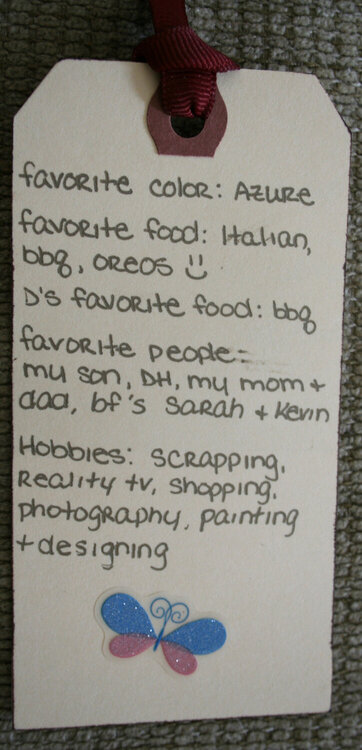 favorite color: Azure
favorite food: Italian,
bbq, oreos
D's favorite food: bbq
favorite people:
my son, DH, my mom +
dad, bf's Sarah + Kevin
Hobbies: scrapping,
Reality tv, shopping,
photography, painting
+ designing